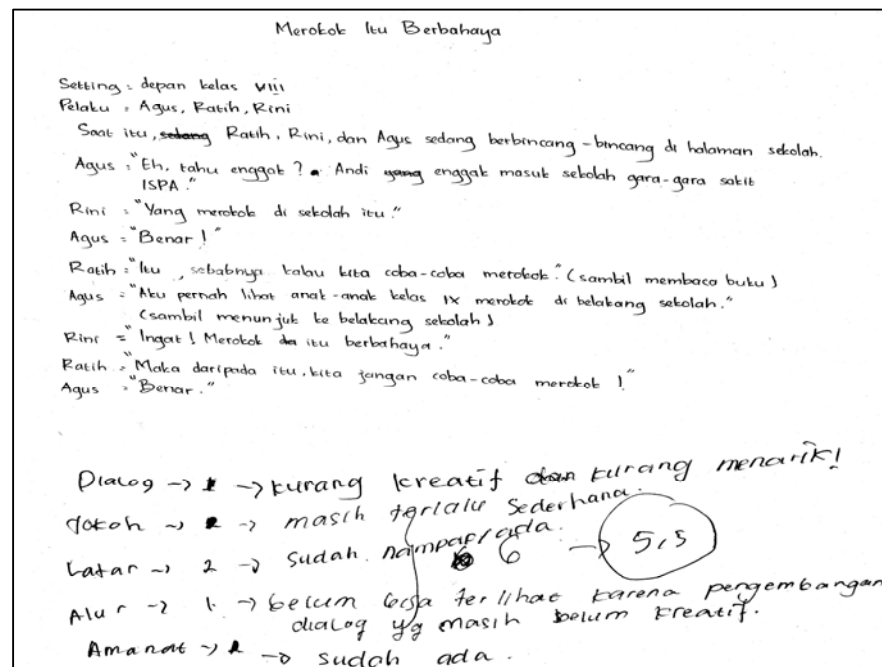 Merokok Itu Berbahaya
Setting : depan kelas VIII
Pelaku : Agus, Ratih, Rini
Saat itu, sedang Ratih, Rini, dan Agus sedang berbincang-bincang di halaman sekolah.
Agus : "Eh, tahu enggak? Andi yang enggak masuk sekolah gara-gara sakit
ISPA."
Rini : "Yang merokok di sekolah itu."
Agus : "Benar!"
Ratih : "Itu, sebabnya kalau kita coba-coba merokok." (sambil membaca buku)
Agus : "Aku pernah lihat anak-anak kelas IX merokok di belakang sekolah."
(sambil menunjuk ke belakang sekolah)
Rini = "Ingat! Merokok itu berbahaya."
Ratih : "Maka daripada itu, kita jangan coba-coba merokok!"
Agus : "Benar."
Dialog → → kurang kreatif dan kurang menarik!
Tokoh → → masih terlalu sederhana.
Latar → 2 → sudah nampak/ada.
6 → 5,5
Alur → 1 → belum bisa terlihat karena pengembangan
dialog yg masih belum kreatif.
Amanat → → sudah ada.